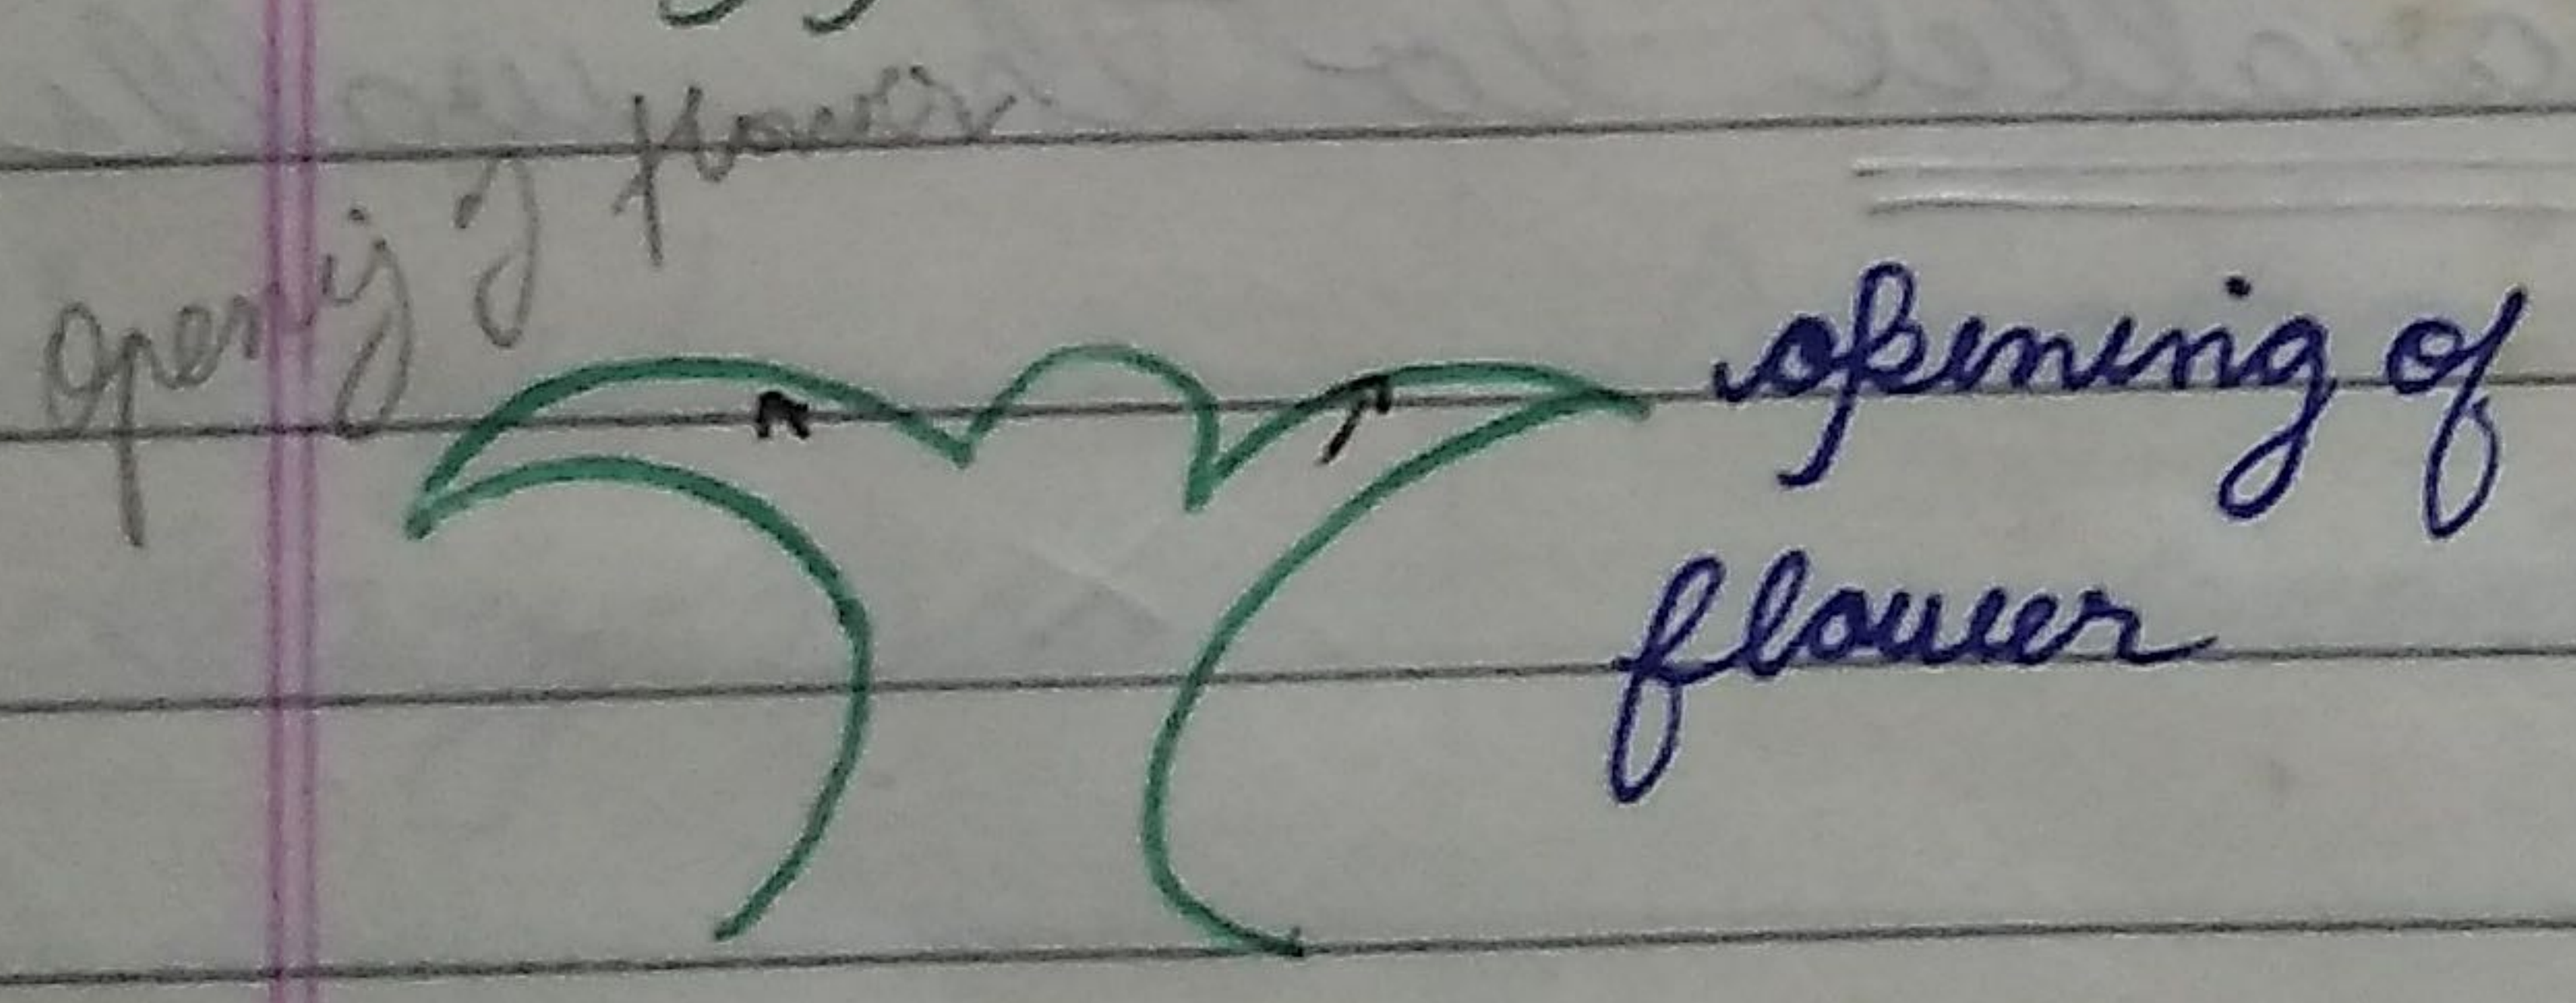 opening of flower
opening of
flower